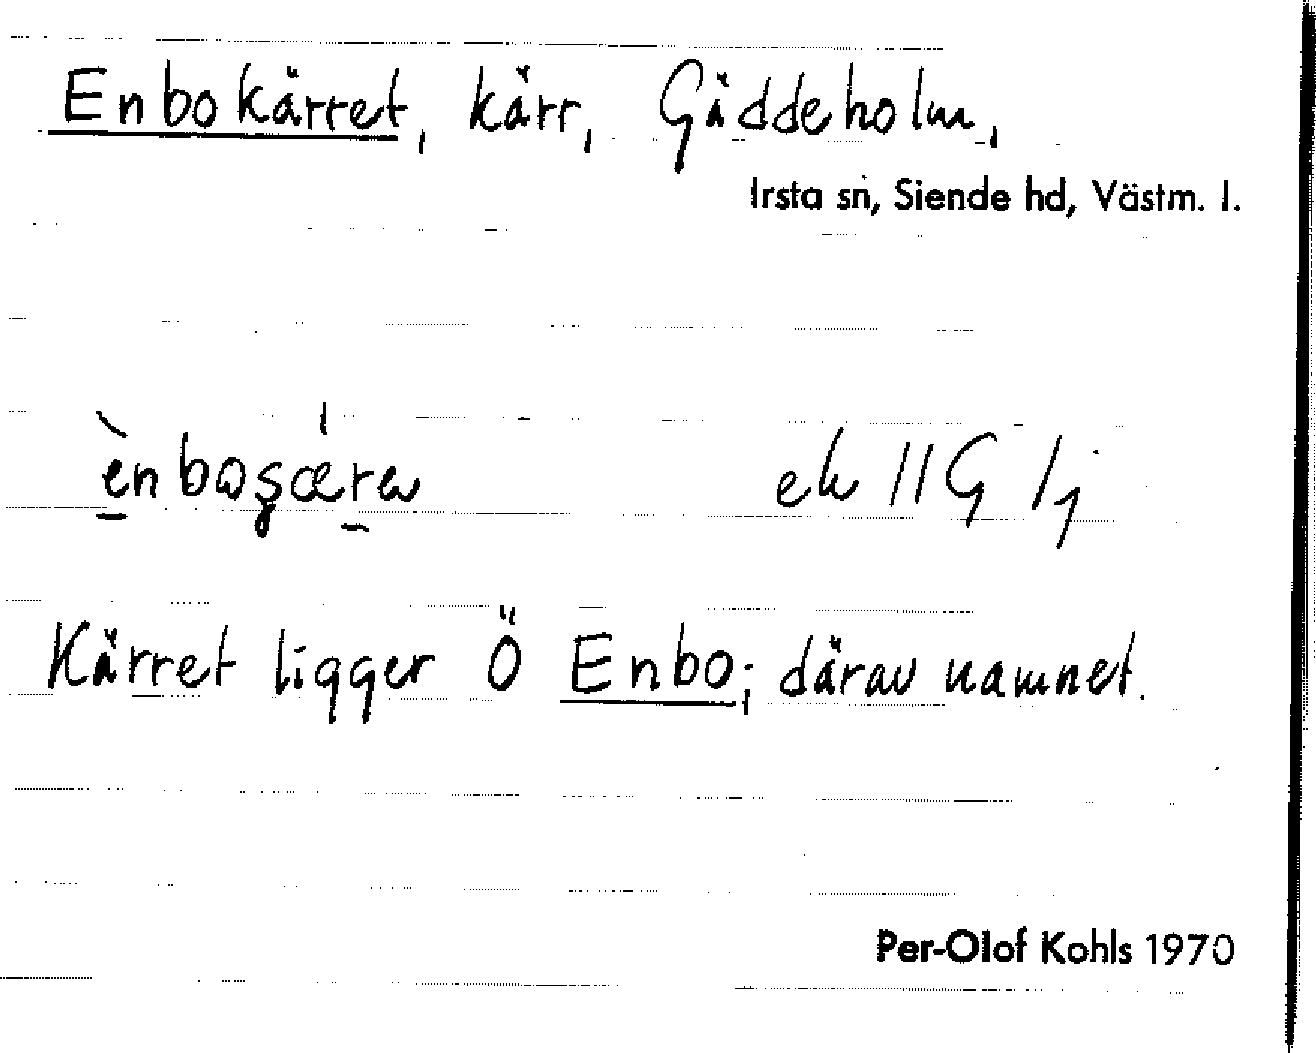 Enbokärret, kärr, Gäddeholm,
Irsta sn, Siende hd, Västm. l.
ek 11G 1j
Kärret ligger Ö Enbo; därav namnet.
Per-Olof Kohls 1970